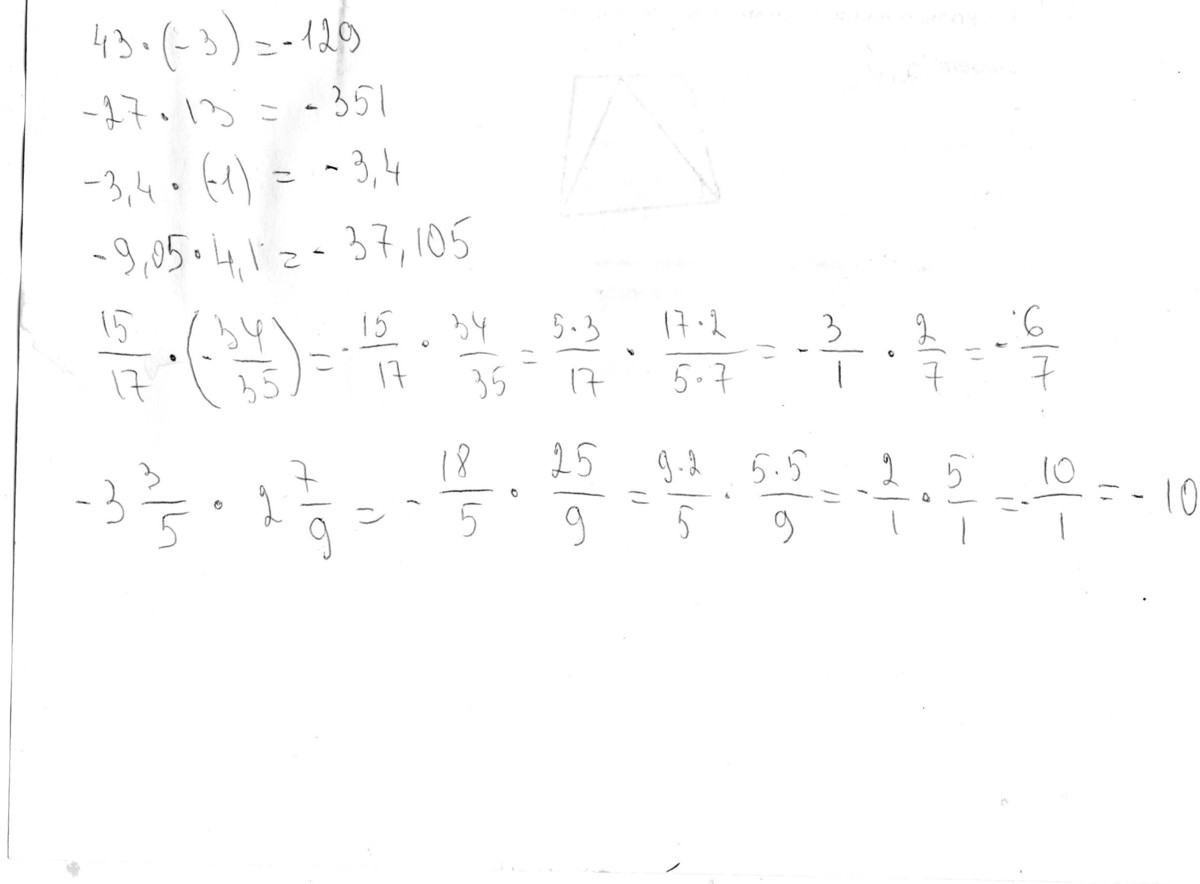 43·(-3)=-129
-27·13=-351
-3,4·(-1)=-3,4
-9,05·4,1=-37,105
15/17·(-34/35)=-15/17·34/35=5·3/17·17·2/5·7=-3/1·2/7=-6/7
-3 3/5·2 7/9=-18/5·25/9=9·2/5·5·5/9=-2/1·5/1=-10/1=-10